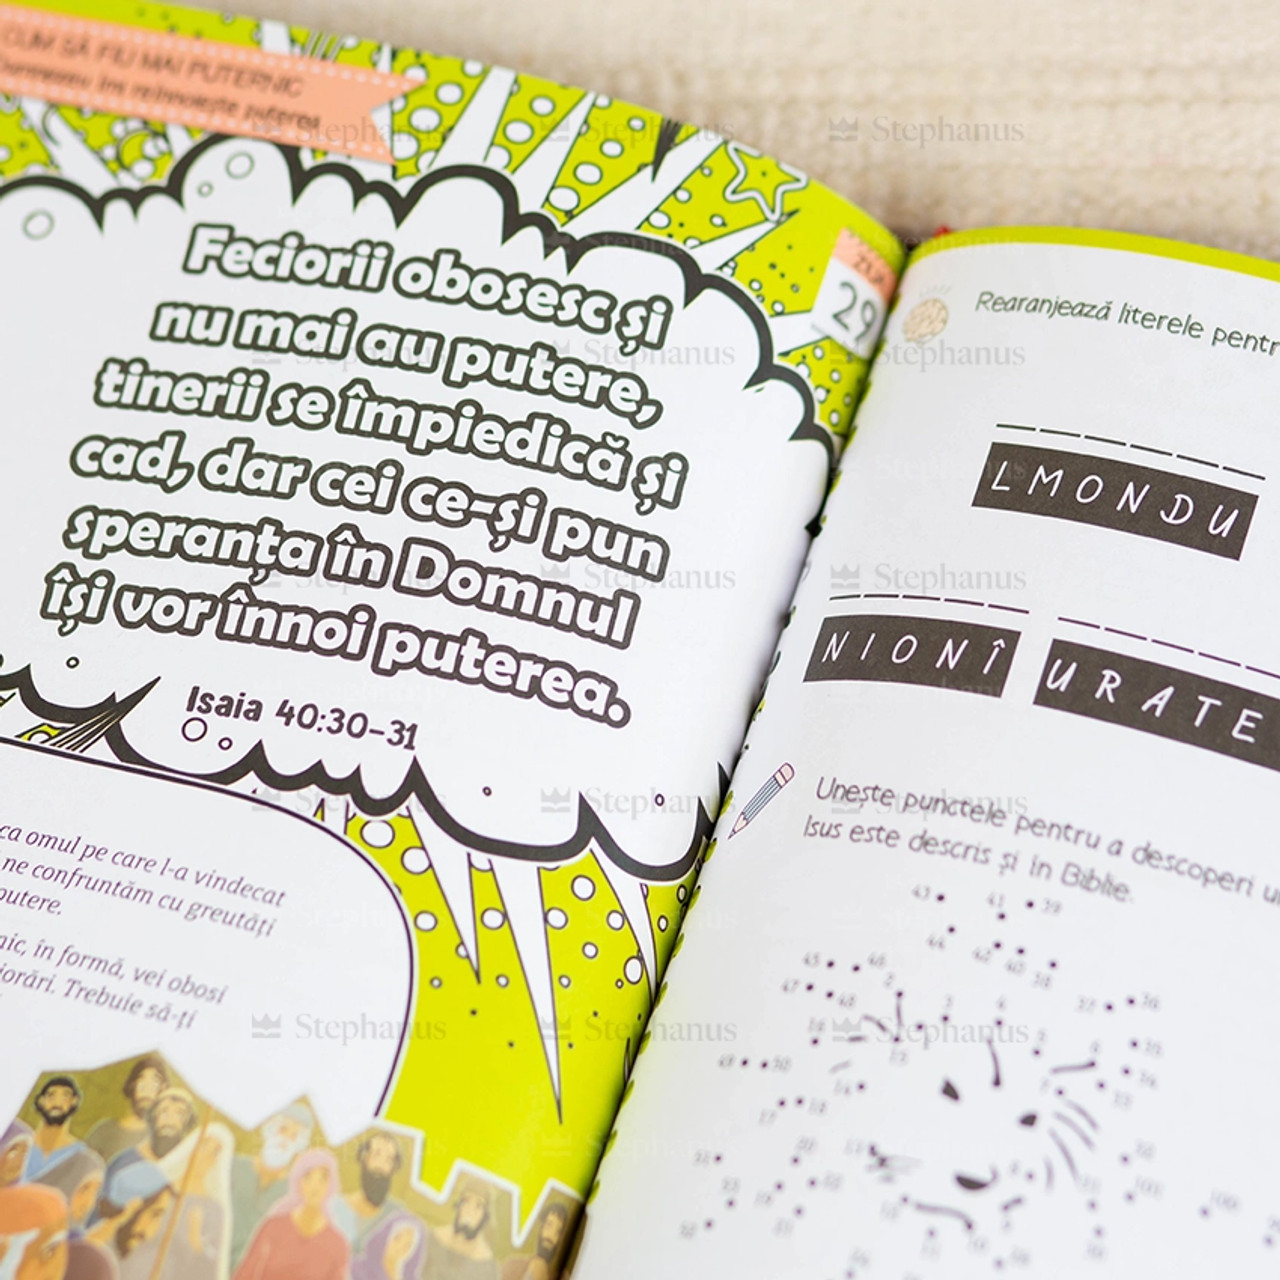 CUM SĂ FII MAI PUTERNIC
Dumnezeu îmi reînnoiește puterea
ZIUA
29
Feciorii obosesc și
nu mai au putere,
tinerii se împiedică și
cad, dar cei ce-și pun
speranța în Domnul
își vor înnoi puterea.
Isaia 40:30-31
ca omul pe care l-a vindecat
ne confruntăm cu greutăți
putere.
nic, în formă, vei obosi
Trebuie să-ți
Rearanjează literele pentr
LMONDU
NIONÎ
URATE
Unește punctele pentru a descoperi
Isus este descris și în Biblie.
Stephanus